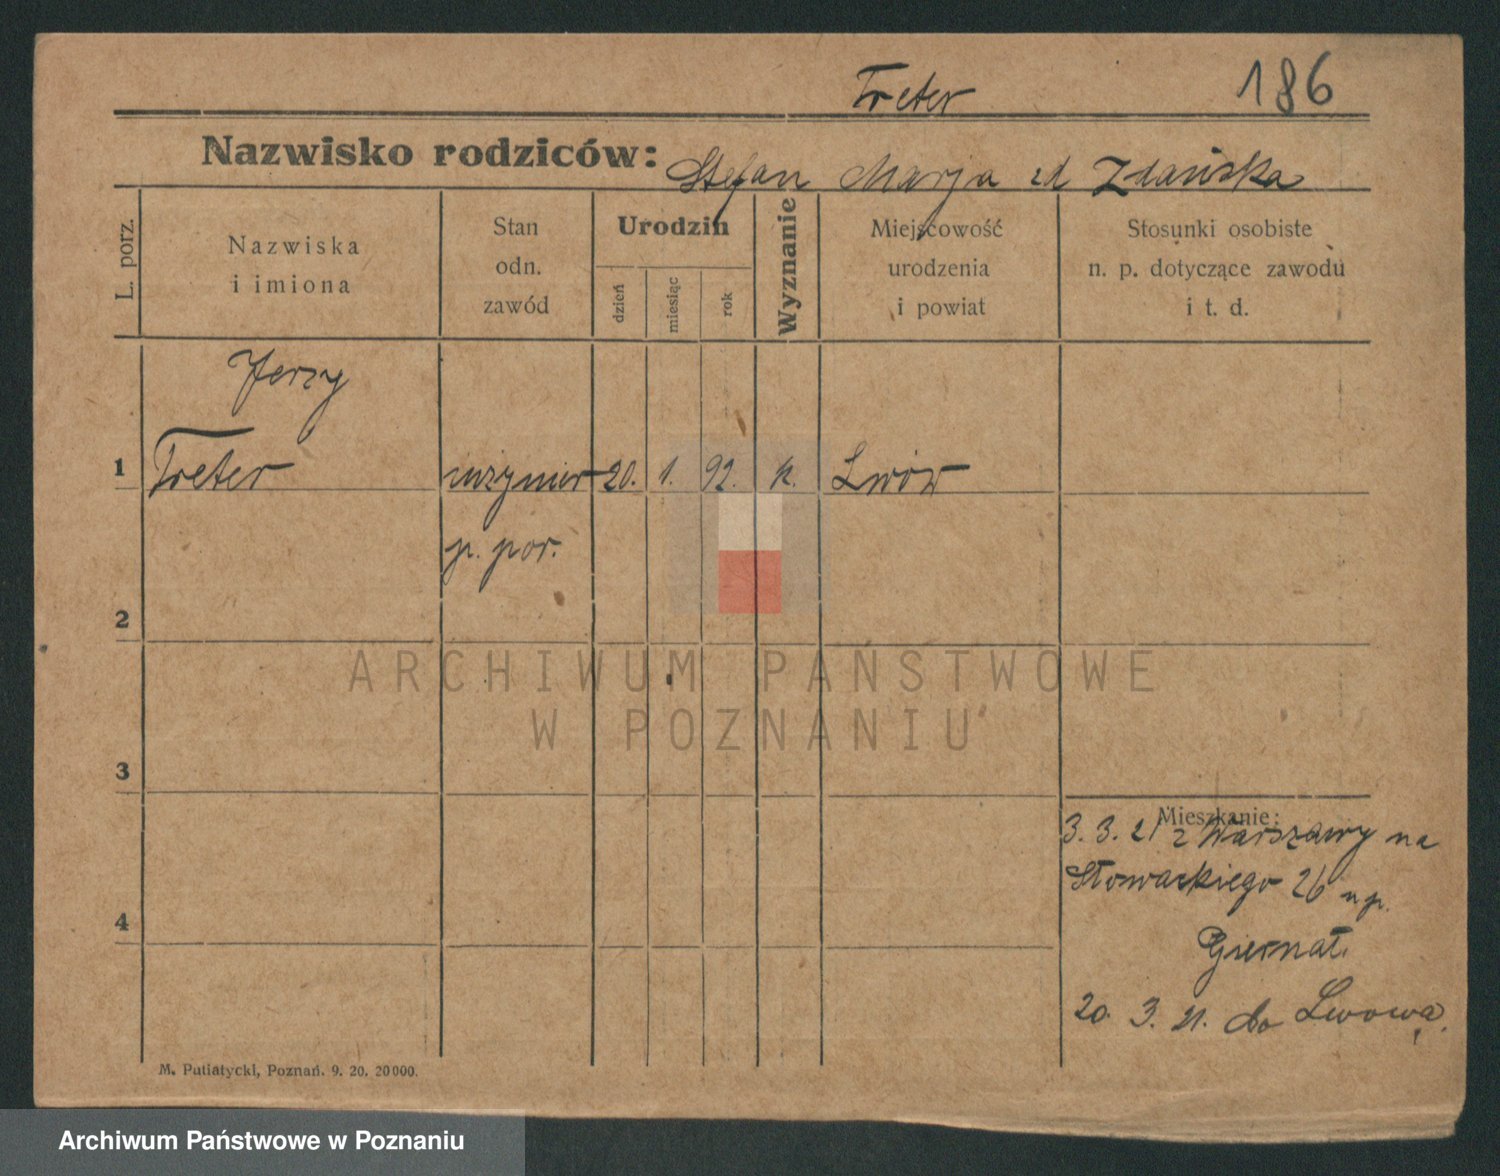 Treter 186
Nazwisko rodziców: Stefan Marja zd Zdańska
L. porz.
Nazwiska
i imiona
Stan
odn.
zawód
Urodzin
dzień
miesiąc
rok
Wyznanie
Miejscowość
urodzenia
i powiat
Stosunki osobiste
n. p. dotyczące zawodu
i t. d.
Jerzy
1 Treter inżynier 20. 1. 92. k. Lwów
p. por.
2
3
4
Mieszkanie:
3. 3. 21 z Warszawy na
Słowackiego 26 np.
20. 3. 21. do Lwowa
M. Putiatycki, Poznań. 9. 20. 20000.
ARCHIWUM PAŃSTWOWE
W POZNANIU
Archiwum Państwowe w Poznaniu